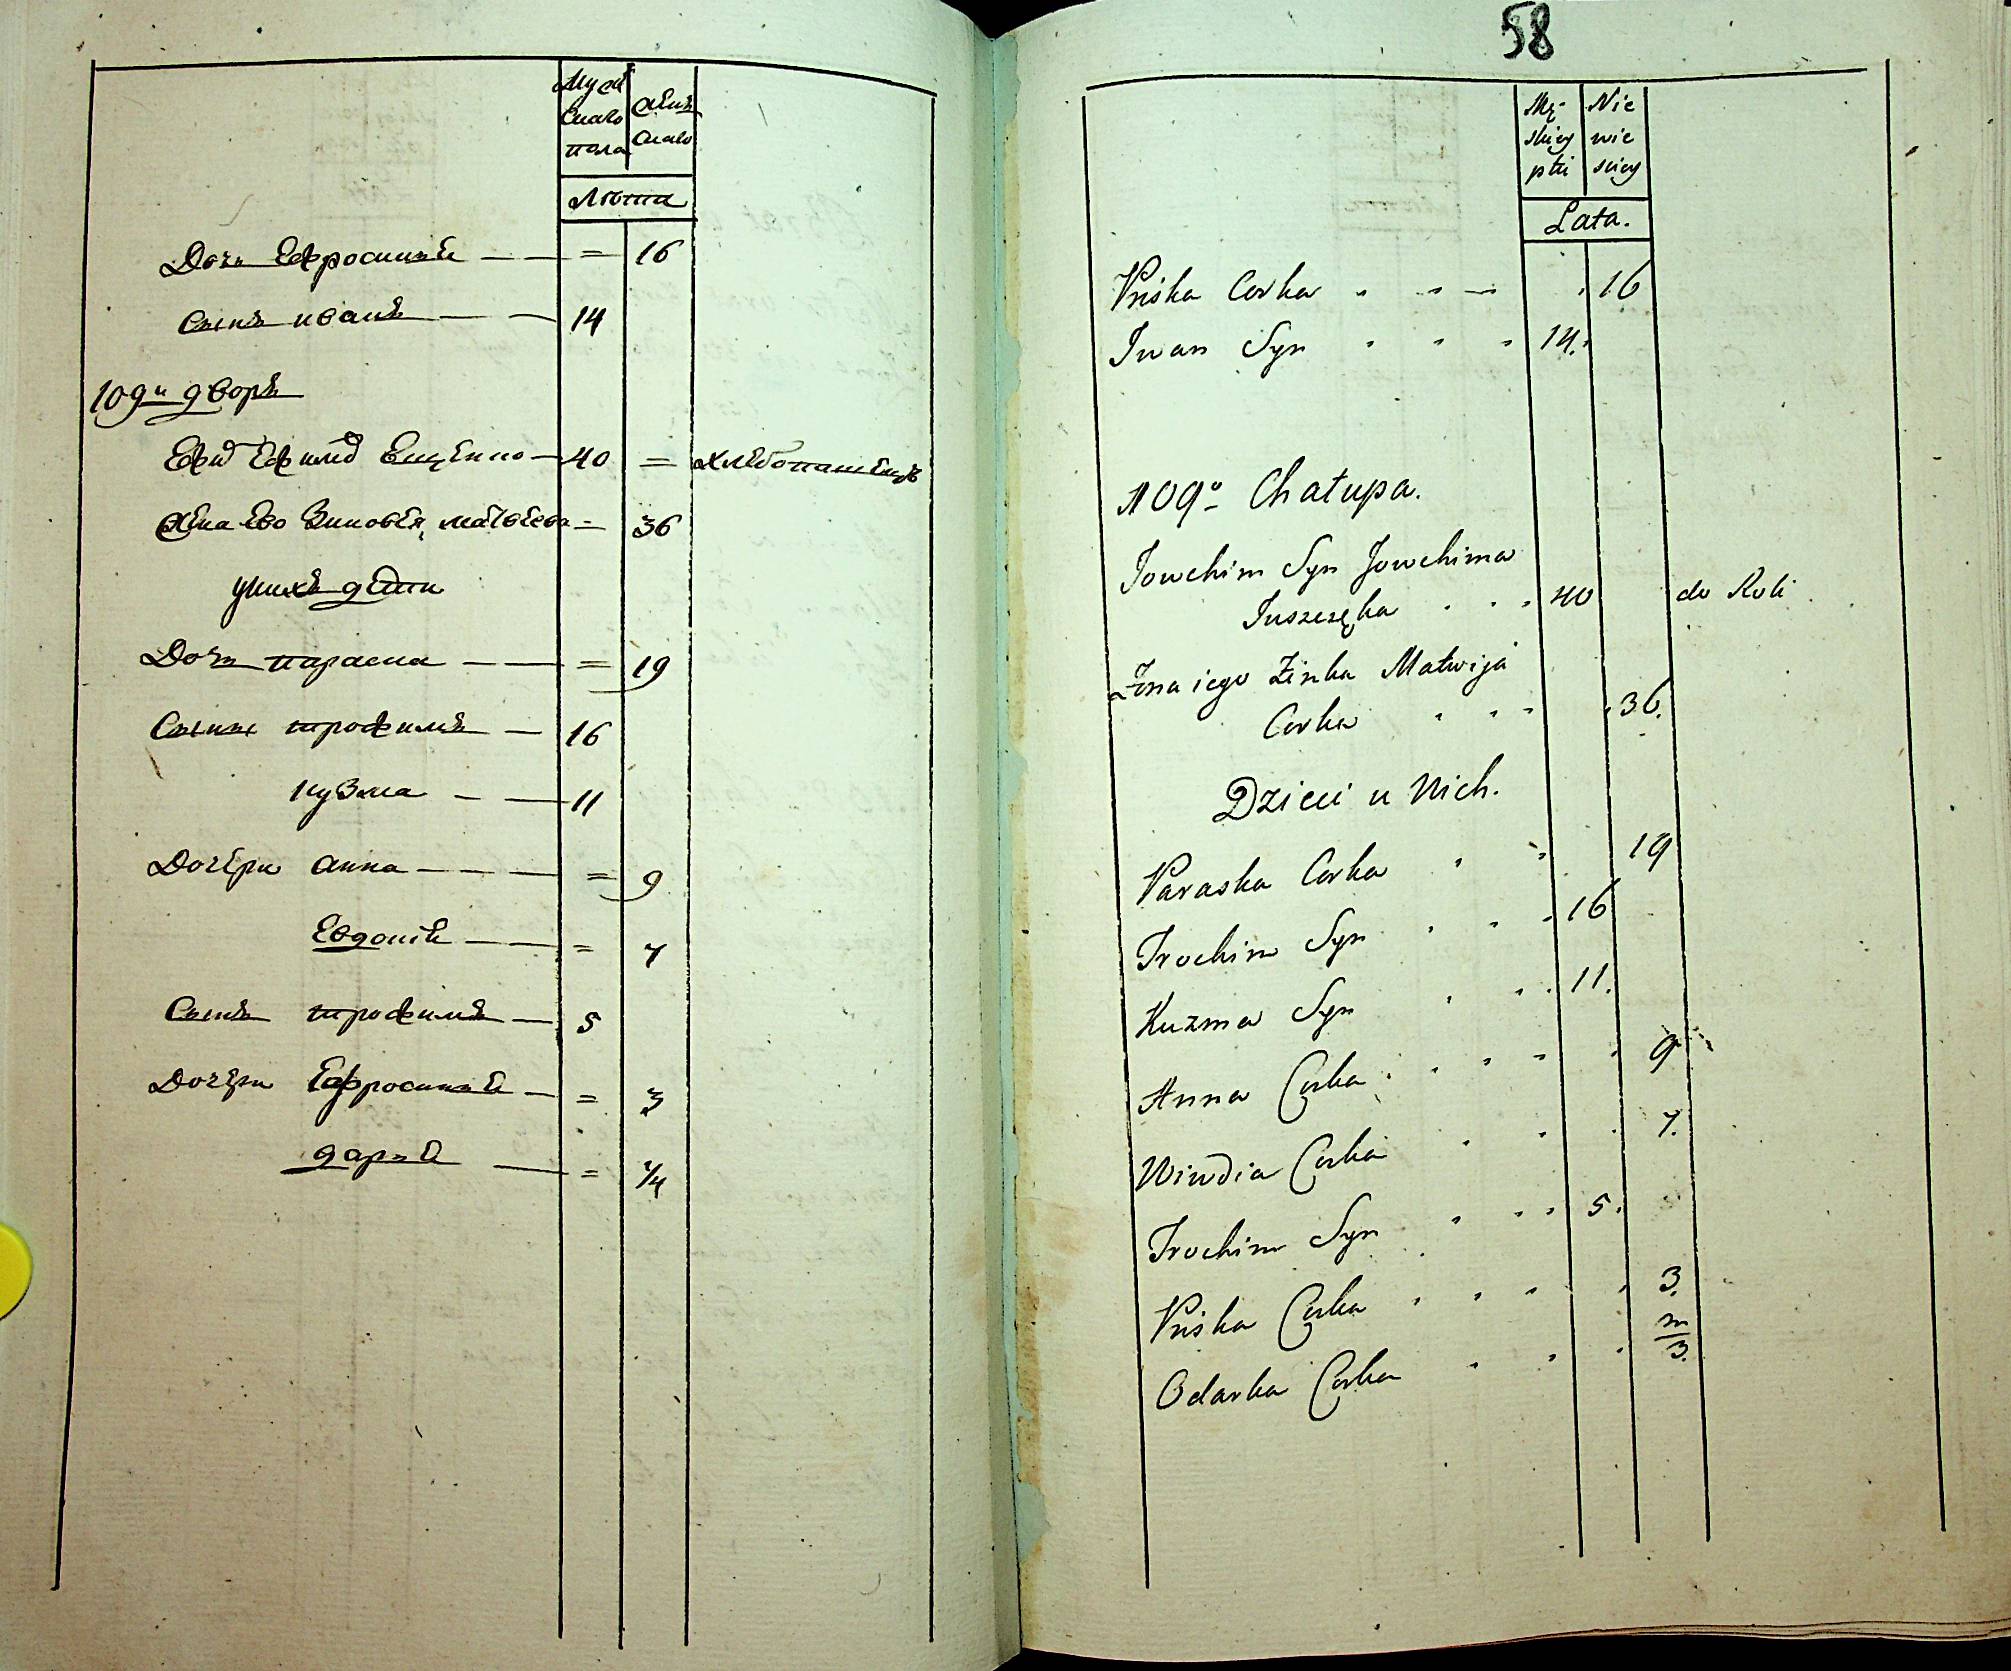 Мужескаго пола
Женскаго
Лѣта
Дочь Ефросинія — — = 16
Сынъ иванъ — — 14
109й дворъ
Ефим Ефимов — 40 = хлебопашецъ
Жена Ево Зиновѣя, матвѣева = 36
у нихъ дети
Дочь параска — — = 19
Сыны трофимъ — 16
кузма — — 11
Дочери анна — — — = 9
Евдокія — — = 7
Сынъ трофимъ — 5
Дочери Ефросинія — = 3
дарья — = 1/4
58
Mę-skiey płci
Nie wie sciey
Lata.
Priska Corka 16
Iwan Syn 14.
109º Chałupa.
Jowchim Syn Jowchima
40 do Roli
Żona iego Zinka Matwija
Corka 36.
Dzieci u Nich.
Paraska Corka 19
Trochim Syn 16
Kuzma Syn 11.
Anna Corka 9
Wiwdia Corka 7.
Trochim Syn 5.
Priska Corka 3.
Odarka Corka m/3.